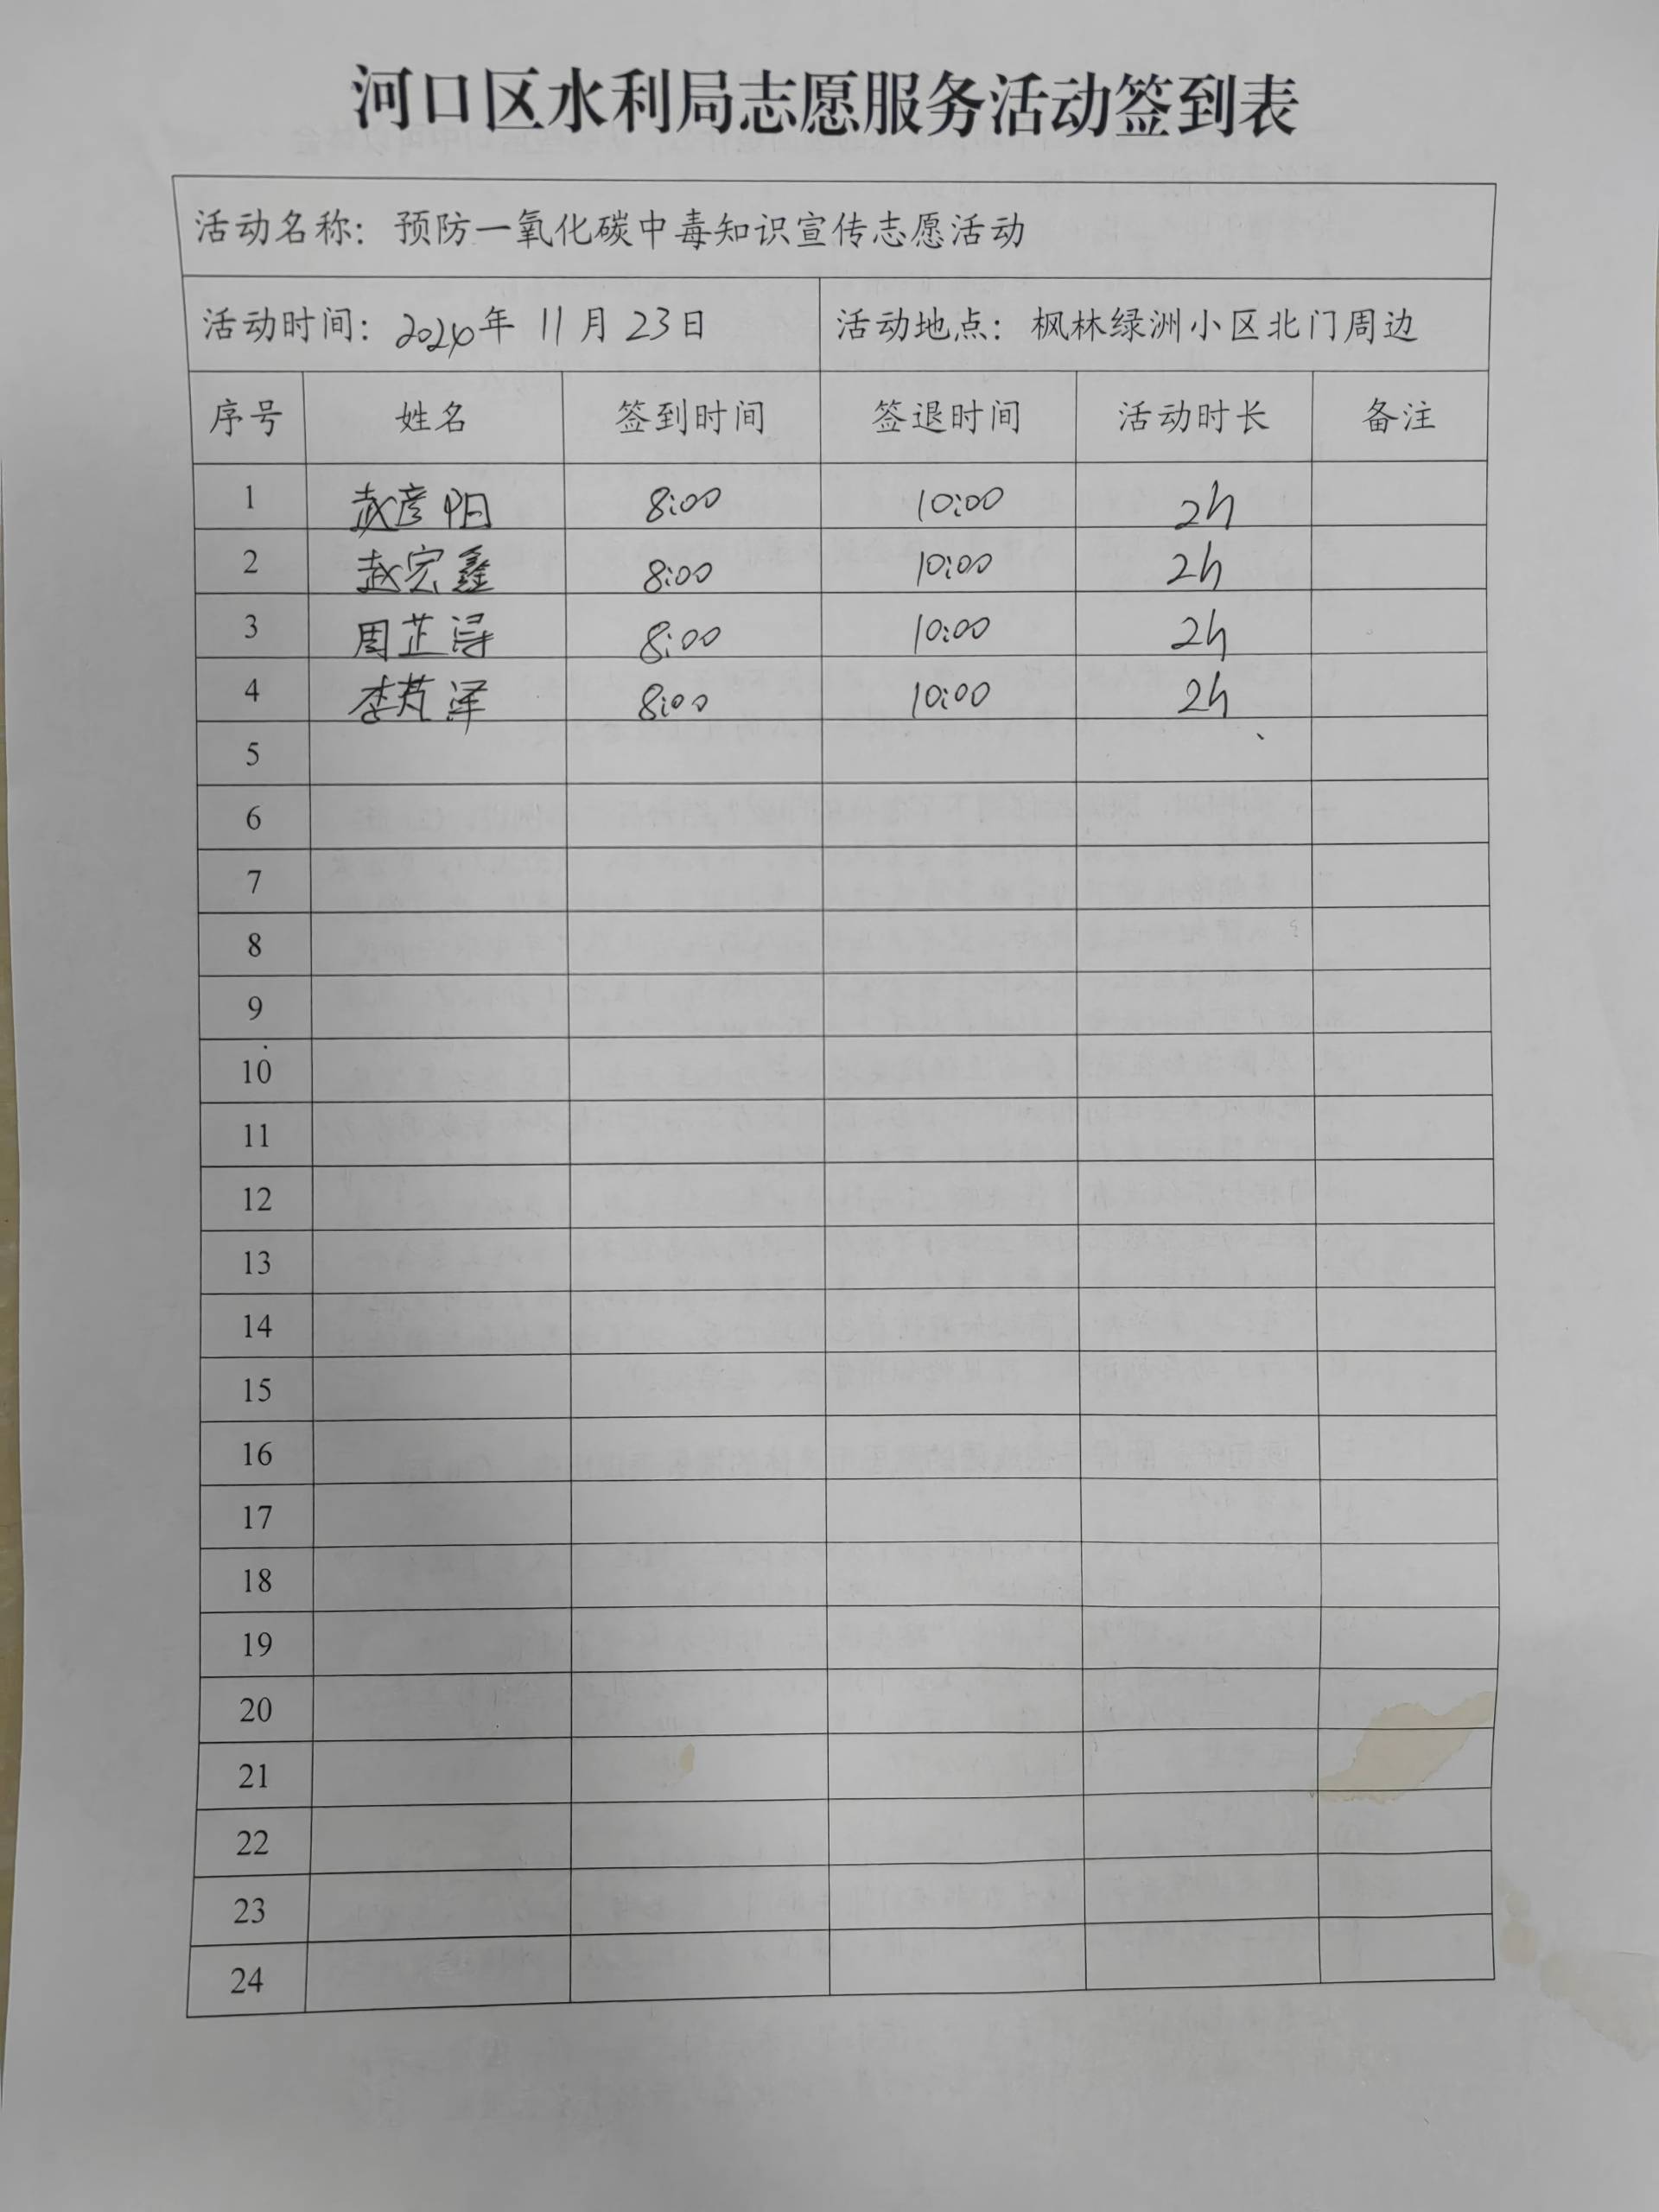 河口区水利局志愿服务活动签到表
活动名称：预防一氧化碳中毒知识宣传志愿活动
活动时间：2024年 11月 23日 活动地点：枫林绿洲小区北门周边
序号 姓名 签到时间 签退时间 活动时长 备注
1 赵彦阳 8:00 10:00 2h
2 赵宏鑫 8:00 10:00 2h
3 周芷浔 8:00 10:00 2h
4 李芃泽 8:00 10:00 2h
5
6
7
8
9
10
11
12
13
14
15
16
17
18
19
20
21
22
23
24